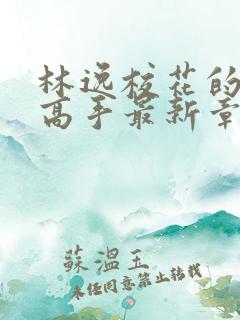 林逸校花的
高手最新章
蘇溫玉
未经同意禁止转载